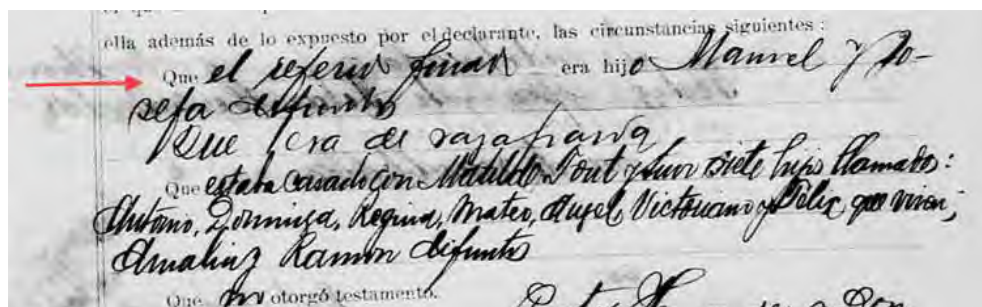 ella además de lo expuesto por el declarante, las circunstancias siguientes:
Que el referido finado era hijo Manuel y Jo-
sefa difuntos
Que era de raza parda
Que estaba casado con Matilde Font y tuvo siete hijos llamados:
Antonio, Dominga, Regina, Mateo, Angel Victoriano y Felix, que viven;
Amalia y Ramon difuntos
Que no otorgó testamento.